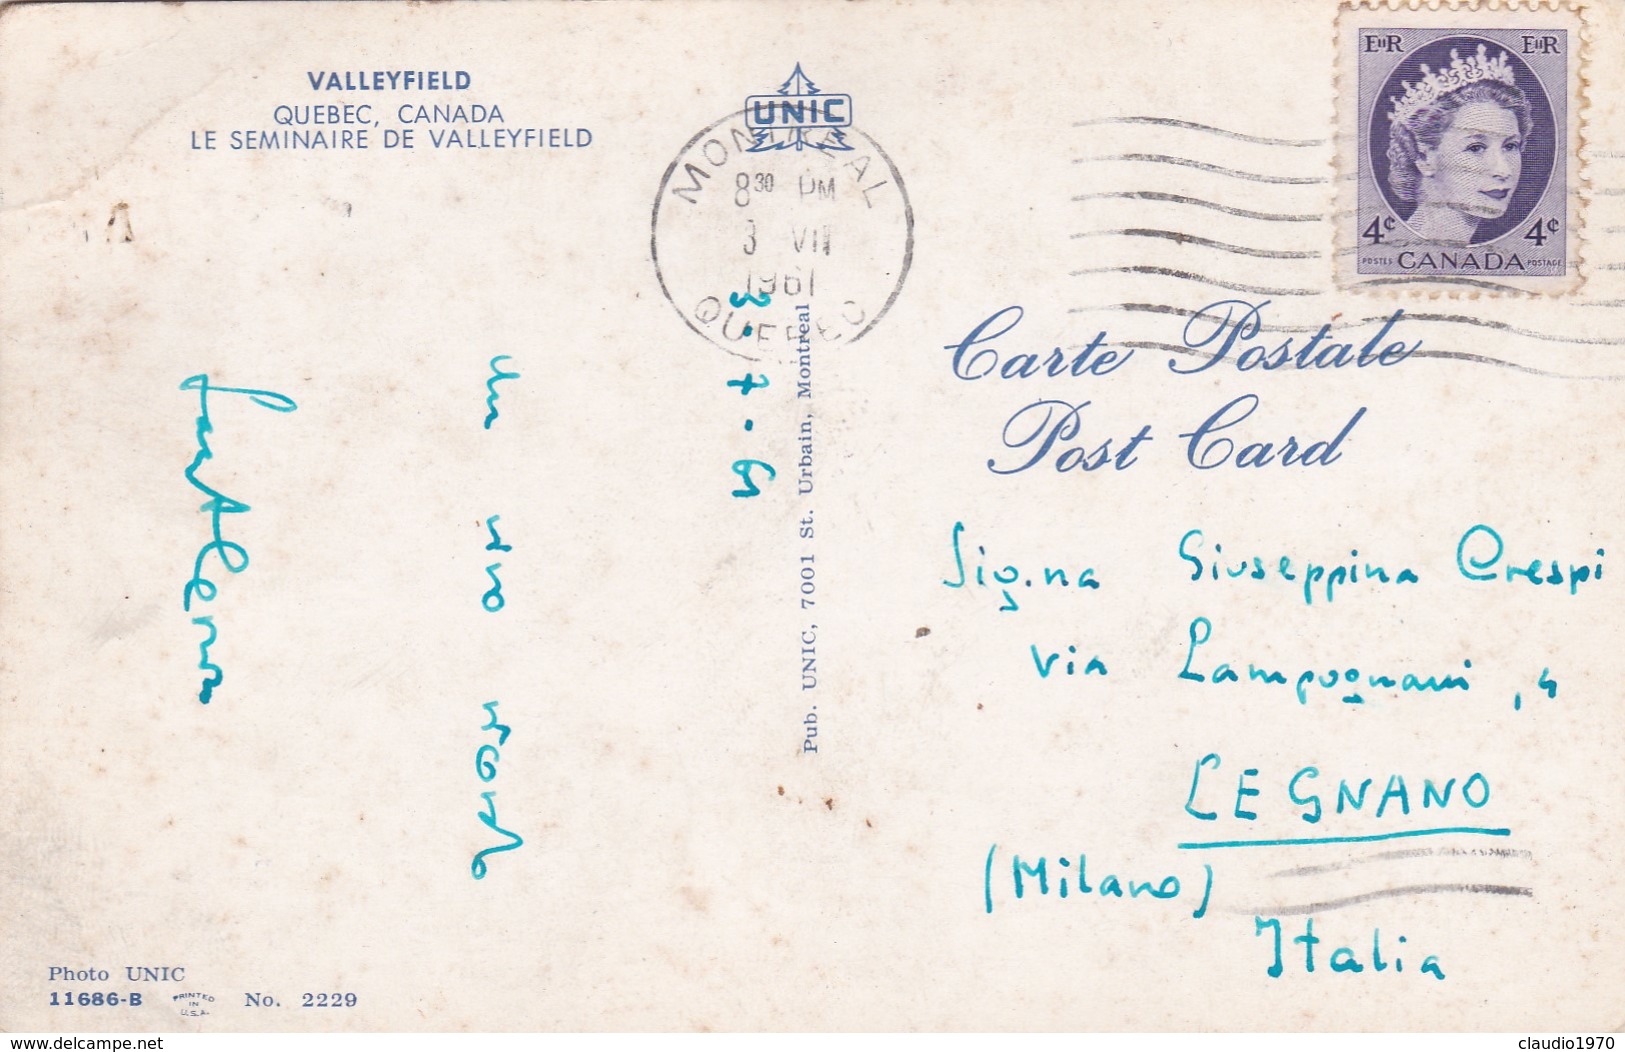 VALLEYFIELD
QUEBEC, CANADA
LE SEMINAIRE DE VALLEYFIELD
UNIC
MONTREAL
8 30 PM
3 VII
1961
QUEBEC
EIIR EIIR
4¢ 4¢
POSTES CANADA POSTAGE
Carte Postale
Post Card
3-7-61
Pub. UNIC, 7001 St. Urbain, Montreal
Sig.na Giuseppina Crespi
via Lampugnani, 4
LEGNANO
(Milano)
Italia
Photo UNIC
11686-B PRINTED IN U.S.A. No. 2229
www.delcampe.net
claudio1970